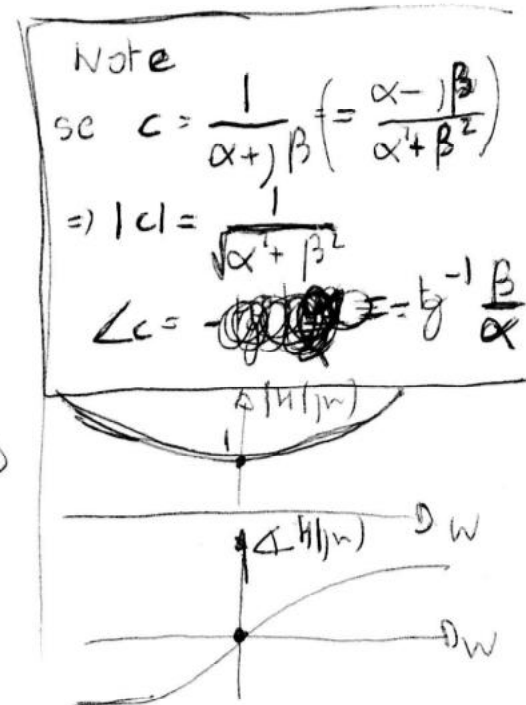 Note
se c = 1/(α+jβ) (= (α-jβ)/(α²+β²))
=> |c| = 1/√(α²+β²)
∠c = - tg⁻¹ β/α
|H(jw)|
1
w
∠H(jw)
w